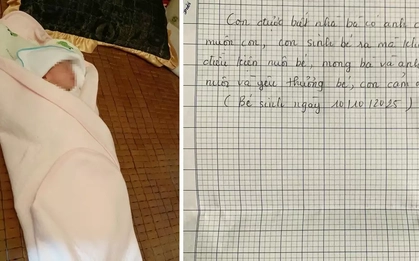 Con được biết nhà bà có anh
muốn con, con sinh bé ra mà
điều kiện nuôi bé, mong bà và anh
nuôi và yêu thương bé, con cảm
( Bé sinh ngày 10/10/2025 )